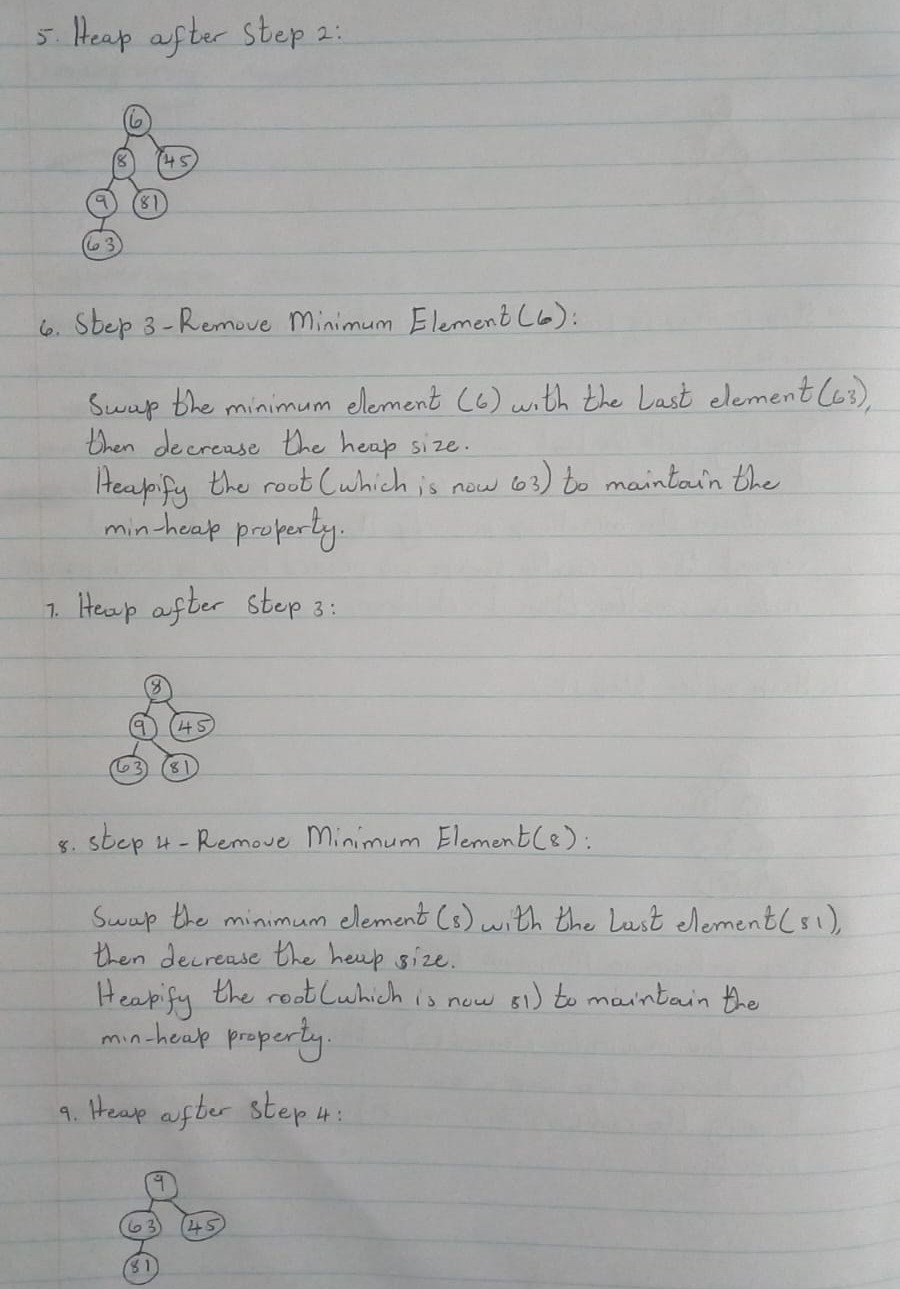 5. Heap after Step 2:
6
8 45
9 81
63
6. Step 3 - Remove Minimum Element (6):
Swap the minimum element (6) with the Last element (63),
then decrease the heap size.
Heapify the root (which is now 63) to maintain the
min-heap property.
7. Heap after Step 3:
8
9 45
63 81
8. Step 4 - Remove Minimum Element (8):
Swap the minimum element (8) with the Last element (81),
then decrease the heap size.
Heapify the root (which is now 81) to maintain the
min-heap property.
9. Heap after Step 4:
9
63 45
81